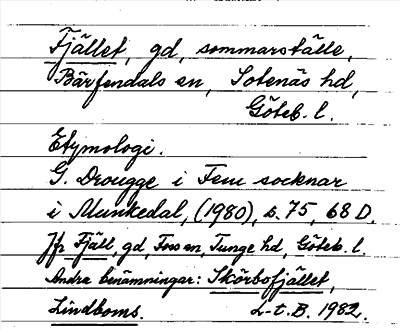 Fjället, gd, sommarställe,
Bärfendals sn, Sotenäs hd,
Göteb. l.
Etymologi.
G. Drougge i Fem socknar
i Munkedal, (1980), s. 75, 68 D.
Jfr Fjäll, gd, Foss sn, Tunge hd, Göteb. l.
Andra benämningar: Skörbofjället,
Lindboms. L-t. B. 1982.